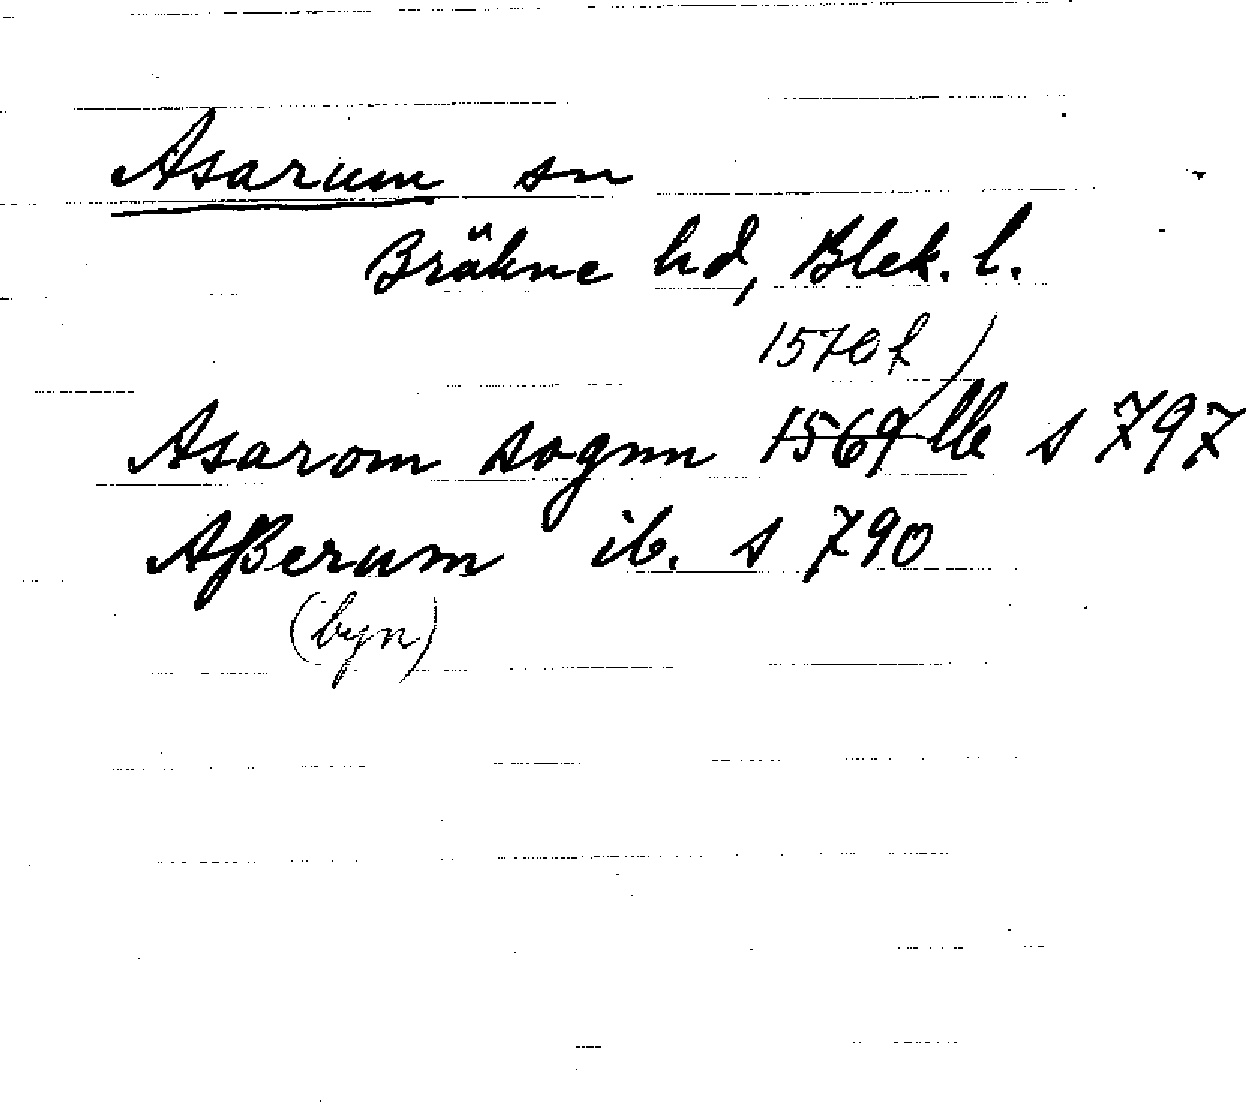 Asarum sn
Bräkne hd, Blek. l.
1570 f
Asarom sognn 1569 lb s 797
Aßerum ib. s 790
(byn)